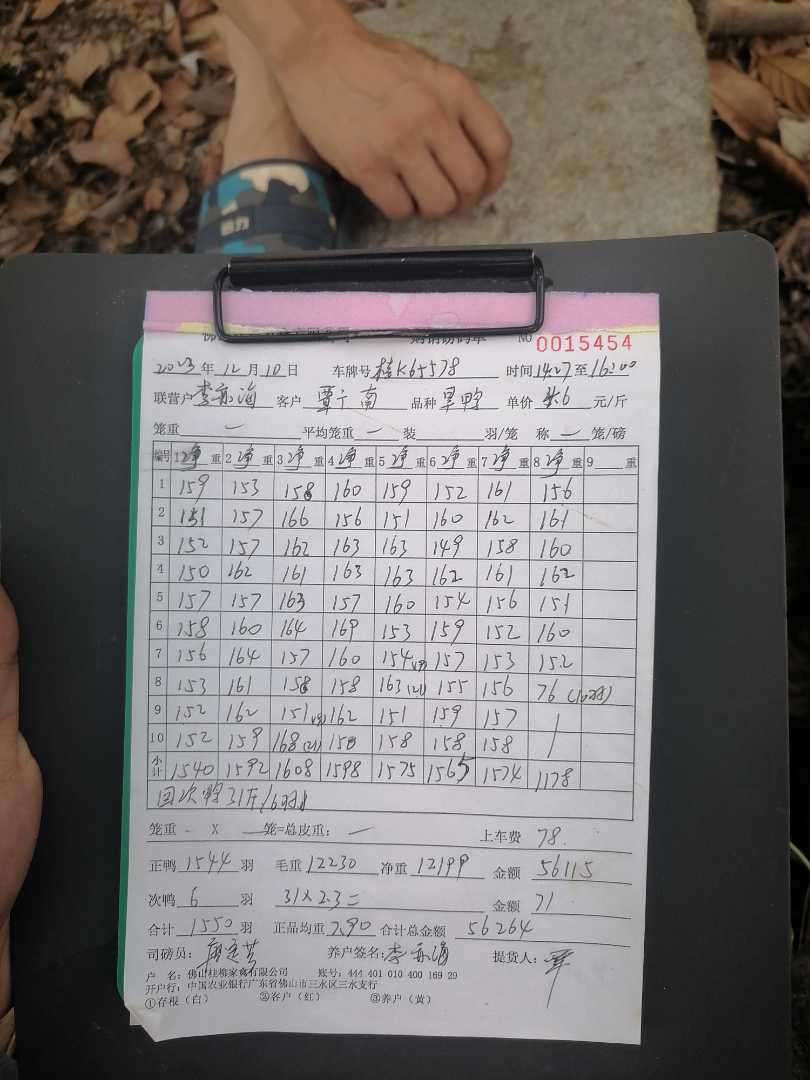 NO 0015454
2023年12月10日 车牌号桂K65578 时间14:27至16:00
联营户 客户 覃广南 品种 单价 4.6 元/斤
笼重 一 平均笼重 一 装 羽/笼 称 一 笼/磅
编号 1净重 2净重 3净重 4净重 5净重 6净重 7净重 8净重 9 重
1 159 153 158 160 159 152 161 156
2 151 157 166 156 151 160 162 161
3 152 157 162 163 163 149 158 160
4 150 162 161 163 163 162 161 162
5 157 157 163 157 160 154 156 151
6 158 160 164 169 153 159 152 160
7 156 164 157 160 154(19) 157 153 152
8 153 161 158 158 163(21) 155 156 76(10羽)
9 152 162 151(19) 162 151 159 157 /
10 152 159 168(21) 150 158 158 158 /
小计 1540 1592 1608 1598 1575 1565 1574 1178
回次鸭31斤/6羽
笼重 - X 笼=总皮重: 一 上车费 78.
正鸭 1544 羽 毛重 12230 净重 12199 金额 56115
次鸭 6 羽 31×2.3= 金额 71
合计 1550 羽 正品均重 7.90 合计总金额 56264
司磅员: 养户签名: 提货人: 覃
户 名: 佛山桂柳家禽有限公司 账号: 444 401 010 400 169 29
开户行: 中国农业银行广东省佛山市三水区三水支行
①存根（白） ②客户（红） ③养户（黄）